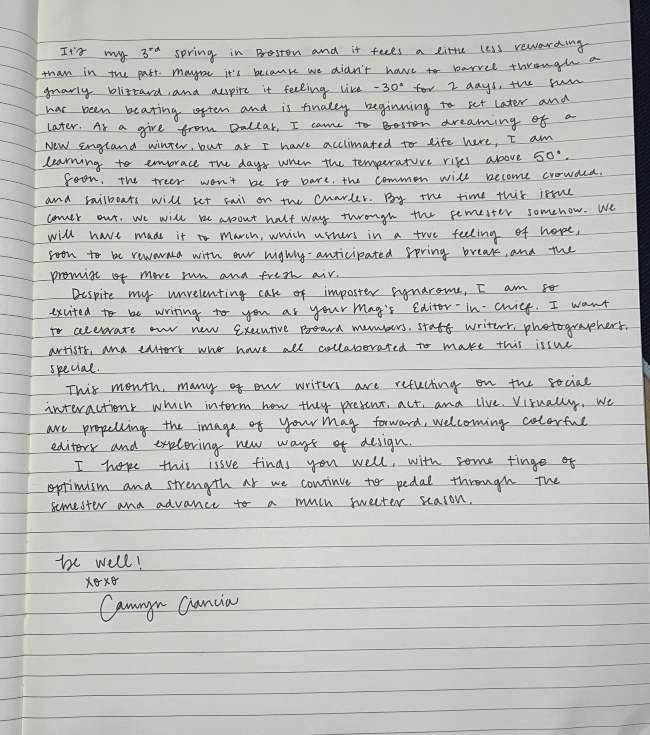 It's my 3rd spring in Boston and it feels a little less rewarding
than in the past. Maybe it's because we didn't have to barrel through a
gnarly blizzard, and despite it feeling like -30° for 2 days, the sun
has been beating often and is finally beginning to set later and
later. As a girl from Dallas, I came to Boston dreaming of a
New England winter, but as I have acclimated to life here, I am
learning to embrace the days when the temperature rises above 50°.
Soon, the trees won't be so bare, the Common will become crowded,
and sailboats will set sail on the Charles. By the time this issue
comes out, we will be about half way through the semester somehow. We
will have made it to March, which ushers in a true feeling of hope,
soon to be rewarded with our highly-anticipated spring break, and the
promise of more sun and fresh air.
Despite my unrelenting case of imposter syndrome, I am so
excited to be writing to you as Your Mag's Editor-in-Chief. I want
to celebrate our new Executive Board members, staff writers, photographers,
artists, and editors who have all collaborated to make this issue
special.
This month, many of our writers are reflecting on the social
interactions which inform how they present, act, and live. Visually, we
are propelling the image of Your Mag forward, welcoming colorful
editors and exploring new ways of design.
I hope this issue finds you well, with some tinge of
optimism and strength as we continue to pedal through the
semester and advance to a much sweeter season.
be well!
xoxo
Camryn Ciancia